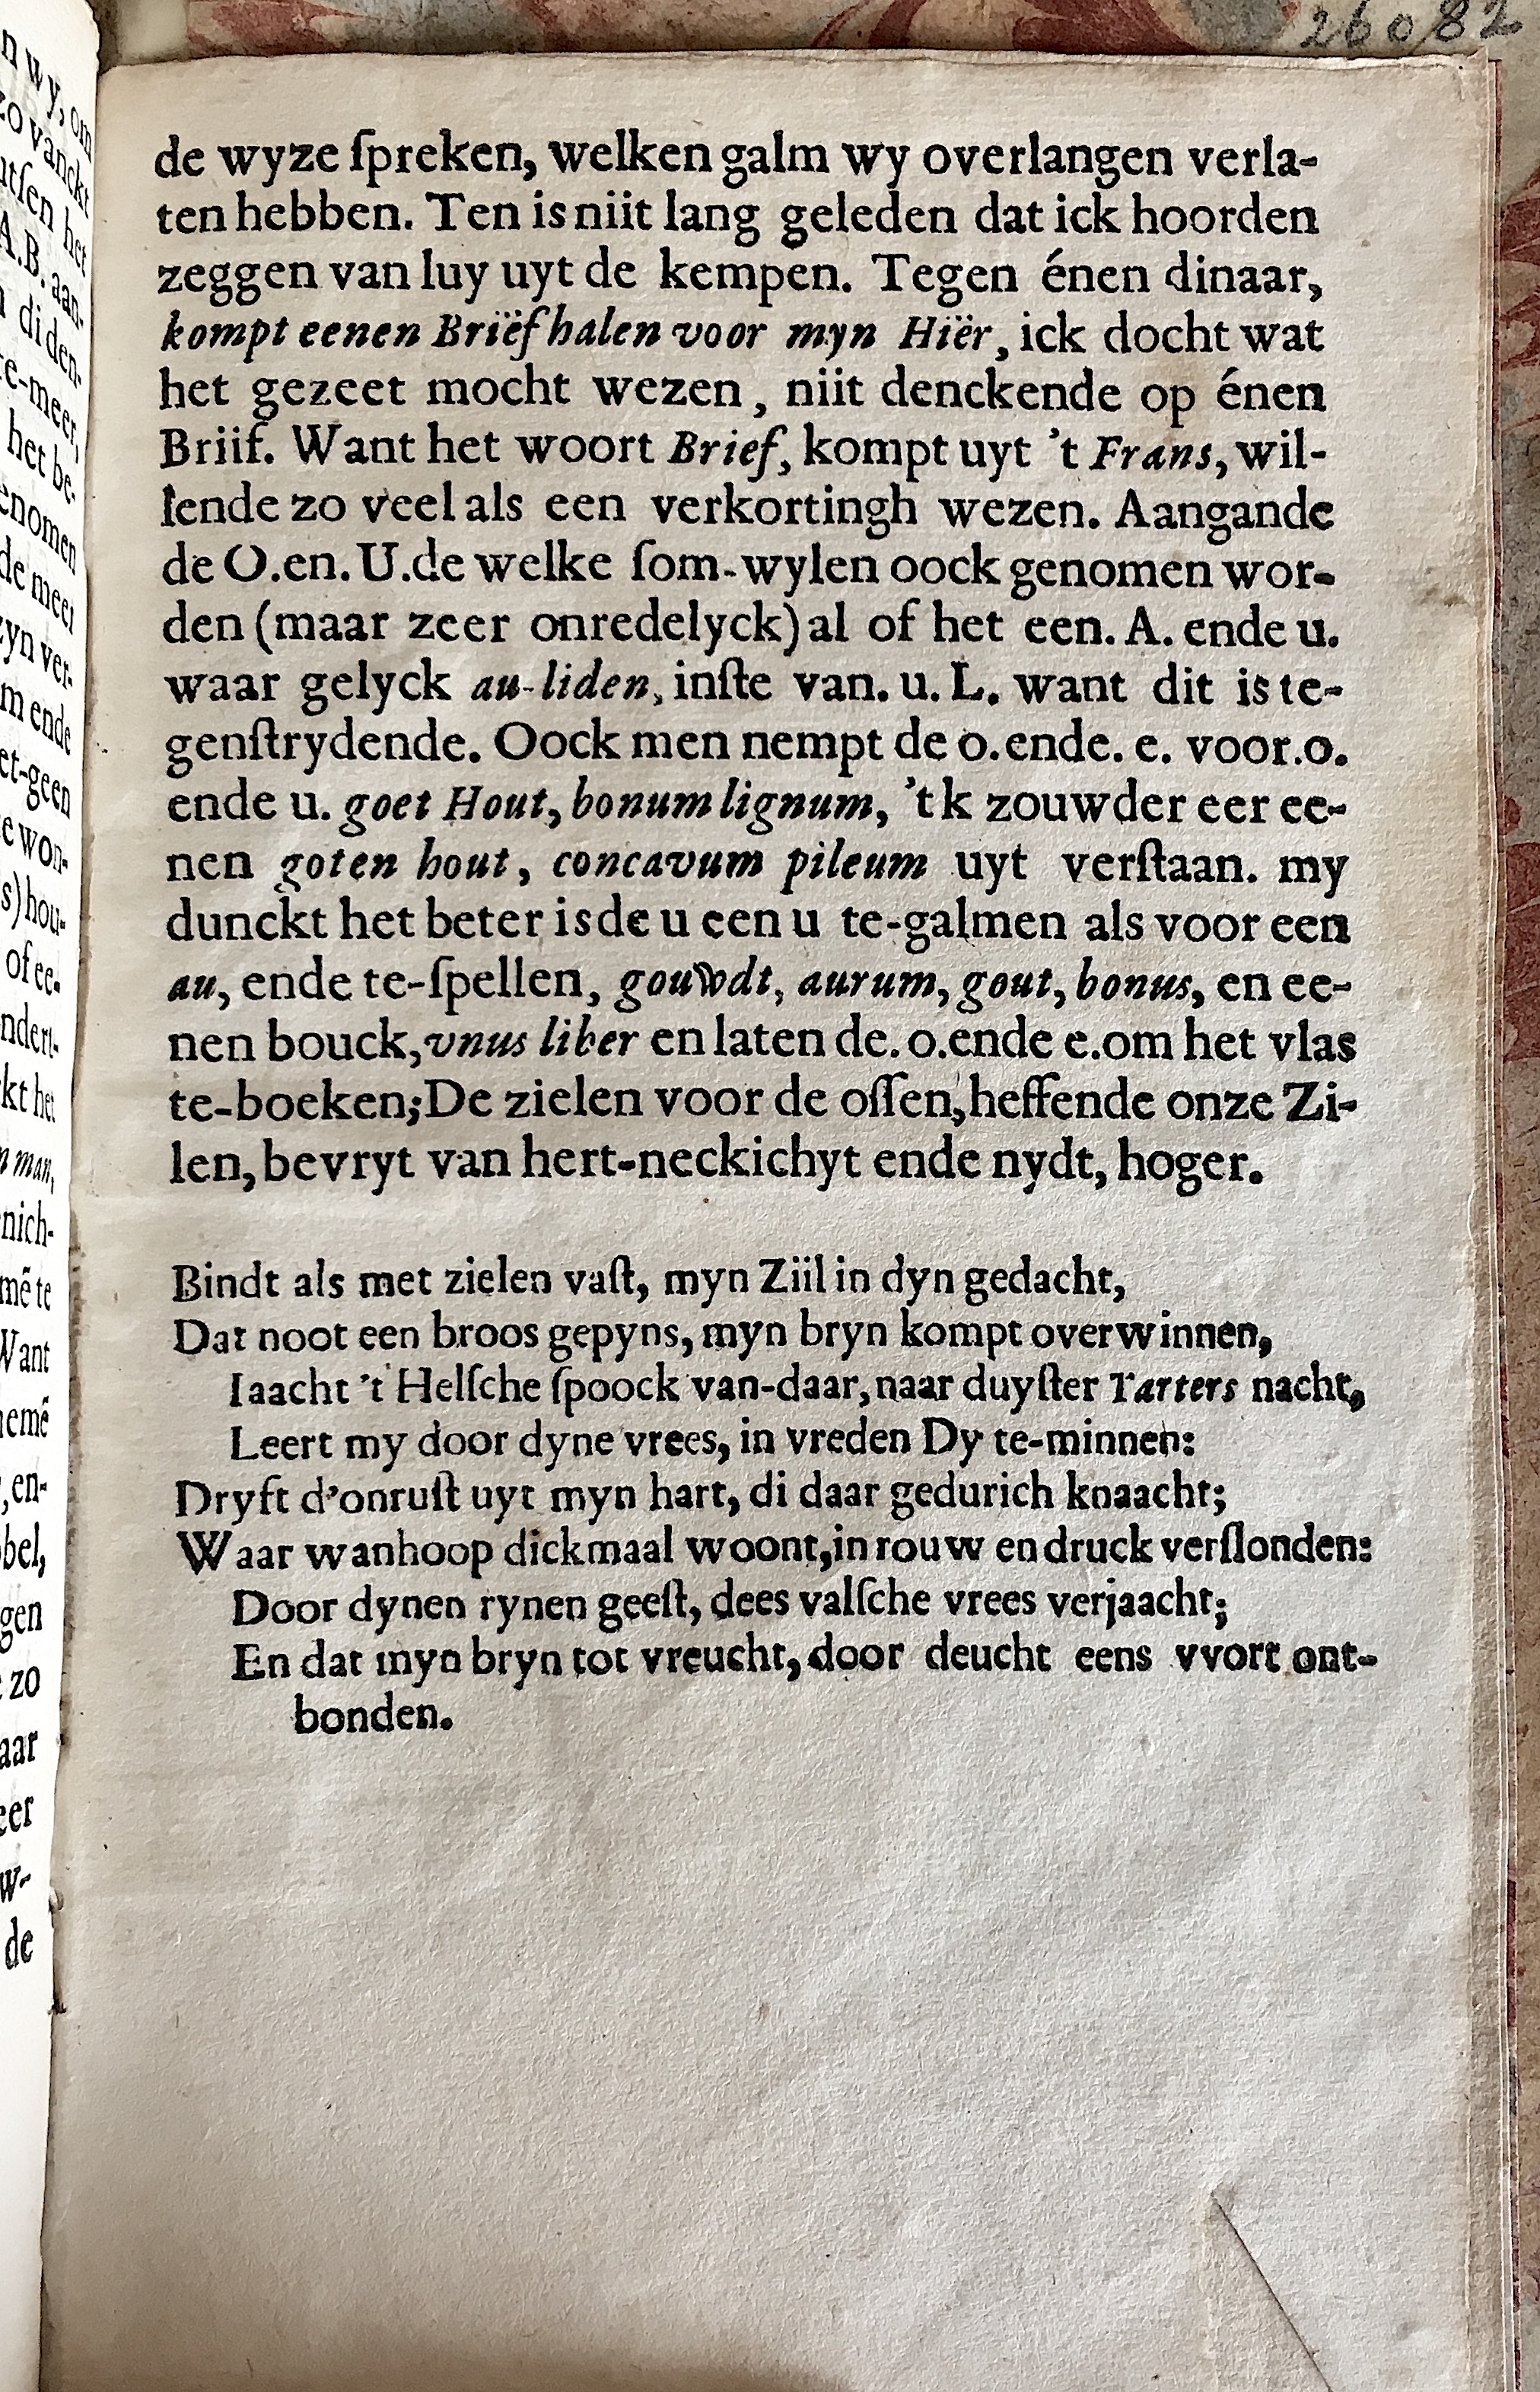 26082
de wyze ſpreken, welken galm wy overlangen verla-
ten hebben. Ten is niit lang geleden dat ick hoorden
zeggen van luy uyt de kempen. Tegen énen dinaar,
kompt eenen Brïëf halen voor myn Hïër, ick docht wat
het gezeet mocht wezen, niit denckende op énen
Briif. Want het woort Brief, kompt uyt 't Frans, wil-
lende zo veel als een verkortingh wezen. Aangande
de O.en. U.de welke ſom-wylen oock genomen wor-
den (maar zeer onredelyck) al of het een. A. ende u.
waar gelyck au-liden, inſte van. u. L. want dit is te-
genſtrydende. Oock men nempt de o.ende. e. voor.o.
ende u. goet Hout, bonum lignum, 'tk zouwder eer ee-
nen goten hout, concavum pileum uyt verſtaan. my
dunckt het beter is de u een u te-galmen als voor een
au, ende te-ſpellen, gouwdt, aurum, gout, bonus, en ee-
nen bouck, vnus liber en laten de. o.ende e.om het vlas
te-boeken; De zielen voor de oſſen, heffende onze Zi-
len, bevryt van hert-neckichyt ende nydt, hoger.
Bindt als met zielen vaſt, myn Ziil in dyn gedacht,
Dat noot een broos gepyns, myn bryn kompt overwinnen,
Iaacht 't Helſche ſpoock van-daar, naar duyſter Tarters nacht,
Leert my door dyne vrees, in vreden Dy te-minnen:
Dryft d'onruſt uyt myn hart, di daar gedurich knaacht;
Waar wanhoop dickmaal woont, in rouw en druck verſlonden:
Door dynen rynen geeſt, dees valſche vrees verjaacht;
En dat myn bryn tot vreucht, door deucht eens vvort ont-
bonden.